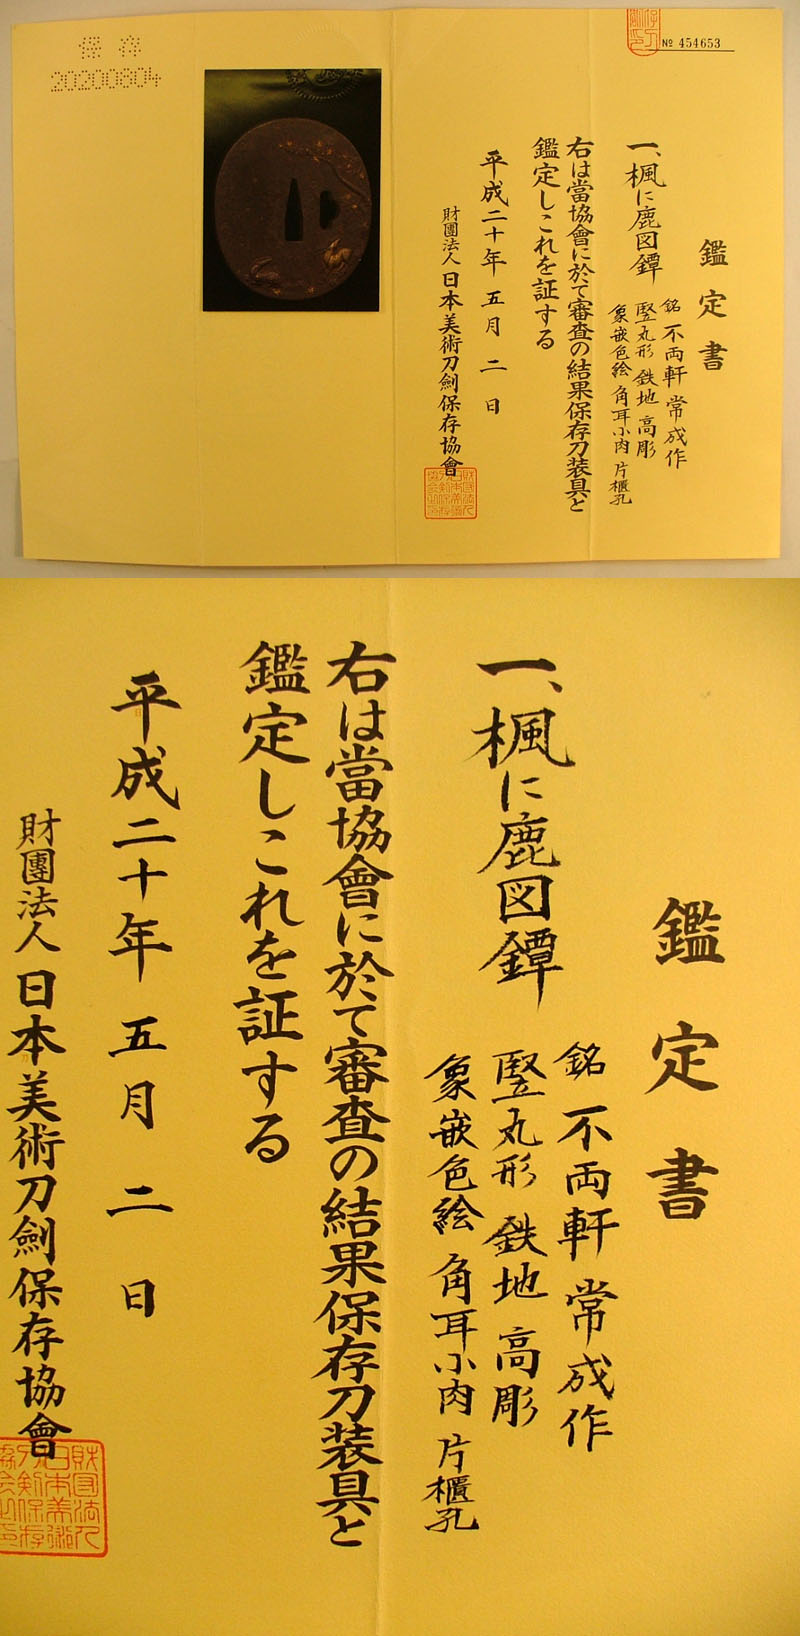 保存
20200804
№ 454653
鑑定書
一、楓に鹿図鐔
銘 不両軒 常成作
竪丸形 鉄地 高彫
象嵌色絵 角耳小肉 片櫃孔
右は當協會に於て審査の結果保存刀装具と
鑑定しこれを証する
平成二十年 五月 二日
財團法人 日本美術刀劍保存協會
鑑定書
一、楓に鹿図鐔
銘 不両軒 常成作
竪丸形 鉄地 高彫
象嵌色絵 角耳小肉 片櫃孔
右は當協會に於て審査の結果保存刀装具と
鑑定しこれを証する
平成二十年 五月 二日
財團法人 日本美術刀劍保存協會